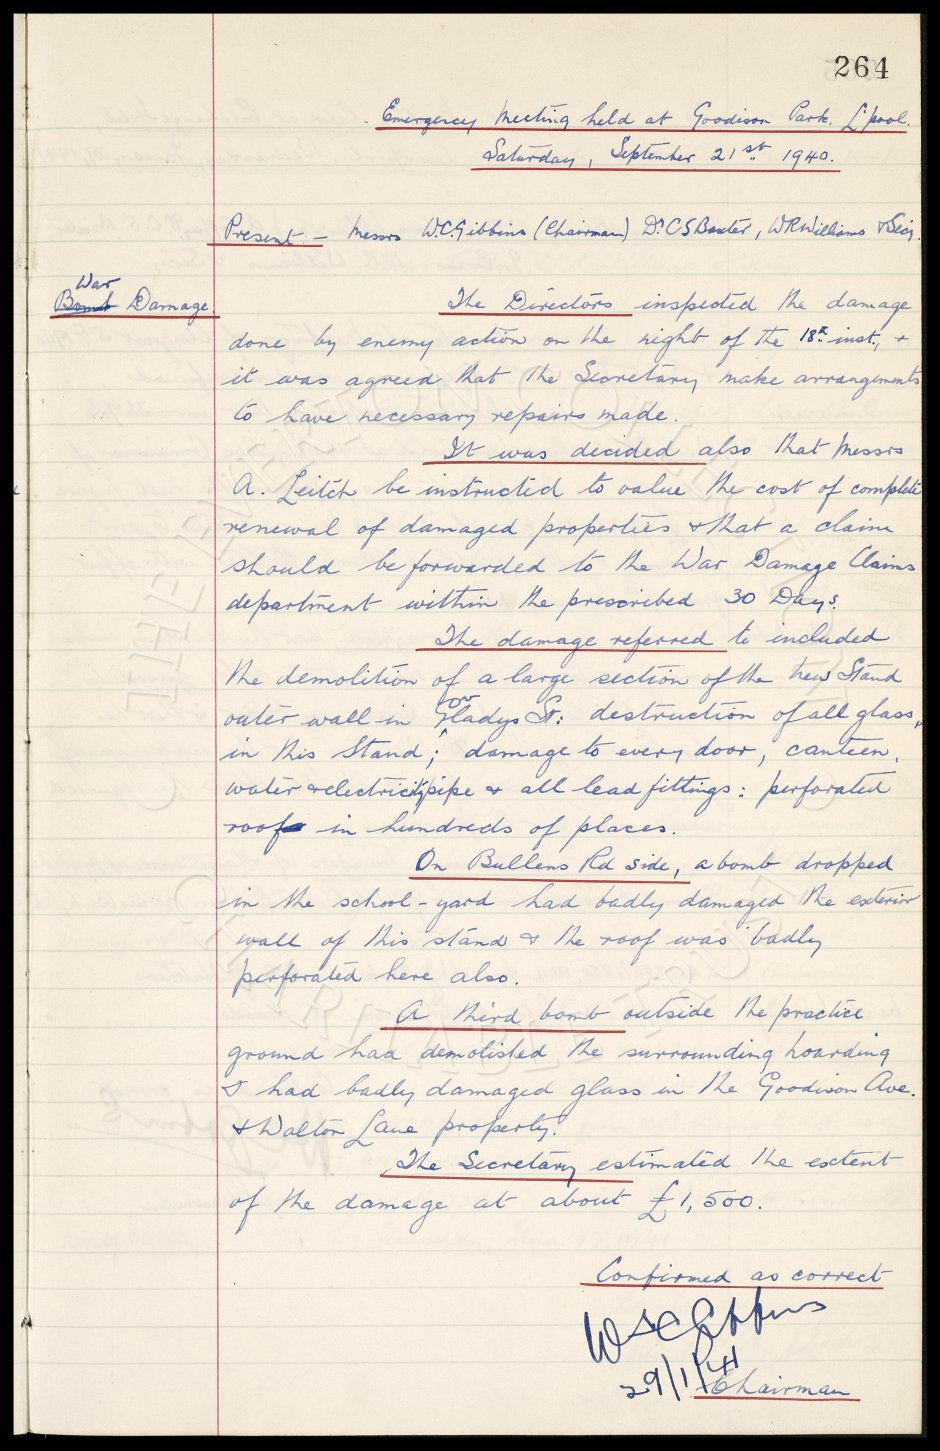 264
Emergency Meeting held at Goodison Park, L'pool.
Saturday, September 21st 1940.
Present:- Messrs W.C. Gibbins (Chairman) Dr. C S Baxter, W R Williams & Secy.
War
Bomb Damage.
The Directors inspected the damage
done by enemy action on the night of the 18th inst., &
it was agreed that the Secretary make arrangements
to have necessary repairs made.
It was decided also that Messrs
A. Leitch be instructed to value the cost of complete
renewal of damaged properties & that a claim
should be forwarded to the War Damage Claims
department within the prescribed 30 Days.
The damage referred to included
the demolition of a large section of the new Stand
outer wall in Gladys St: destruction of all glass,
in this Stand; damage to every door, canteen,
water & electricity pipe & all lead fittings: perforated
roof in hundreds of places.
On Bullens Rd side, a bomb dropped
in the school-yard had badly damaged the exterior
wall of this stand & the roof was badly
perforated here also.
A third bomb outside the practice
ground had demolished the surrounding hoarding
& had badly damaged glass in the Goodison Ave.
& Walton Lane property.
The Secretary estimated the extent
of the damage at about £1,500.
Confirmed as correct
W C Gibbins
29/1/41
Chairman